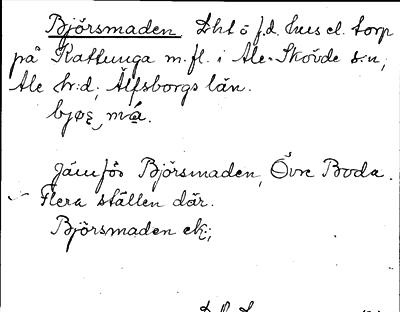 Björsmaden Lht o f.d. hus el. torp
på Kattunga m.fl. i Ale-Skövde s:n,
Ale hr:d, Älfsborgs län.
bjøʂ må.
Jämför Björsmaden, Övre Boda.
Flera ställen där.
Björsmaden ek;